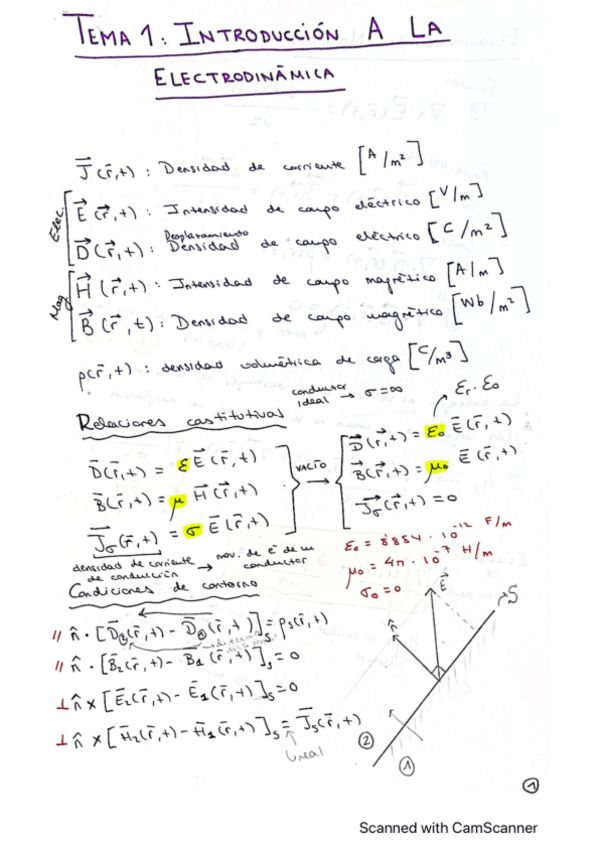 TEMA 1: INTRODUCCIÓN A LA
ELECTRODINÁMICA
J⃗(r̄,t) : Densidad de corriente [A/m²]
Elec.
E⃗(r⃗,t) : Intensidad de campo eléctrico [V/m]
Desplazamiento
D⃗(r⃗,t) : Densidad de campo eléctrico [C/m²]
Mag
H⃗(r⃗,t) : Intensidad de campo magnético [A/m]
B⃗(r⃗,t) : Densidad de campo magnético [Wb/m²]
ρ(r̄,t) : densidad volumétrica de carga [C/m³]
conductor ideal → σ=∞
εr·ε0
Relaciones castitutivas
D̄(r̄,t) = ε Ē(r̄,t)
B̄(r̄,t) = μ H⃗(r⃗,t)
J̄σ(r̄,t) = σ Ē(r̄,t)
VACÍO →
D⃗(r⃗,t) = ε0 Ē(r̄,t)
B⃗(r̄,t) = μ0 Ē(r̄,t)
J⃗σ(r⃗,t) = 0
densidad de corriente de conducción → mov. de ē de un conductor
ε0 = 8'854 · 10⁻¹² F/m
μ0 = 4π · 10⁻⁷ H/m
σ0 = 0
Condiciones de contorno
// n̂ · [D̄②(r̄,t) - D̄①(r̄,t)]s = ρs(r̄,t)
// n̂ · [B̄2(r̄,t) - B̄1(r̄,t)]s = 0
⊥ n̂ × [Ē2(r̄,t) - Ē1(r̄,t)]s = 0
⊥ n̂ × [H̄2(r̄,t) - H̄1(r̄,t)]s = J̄s(r̄,t)
lineal
Ē
n̂
S
②
①
①
Scanned with CamScanner